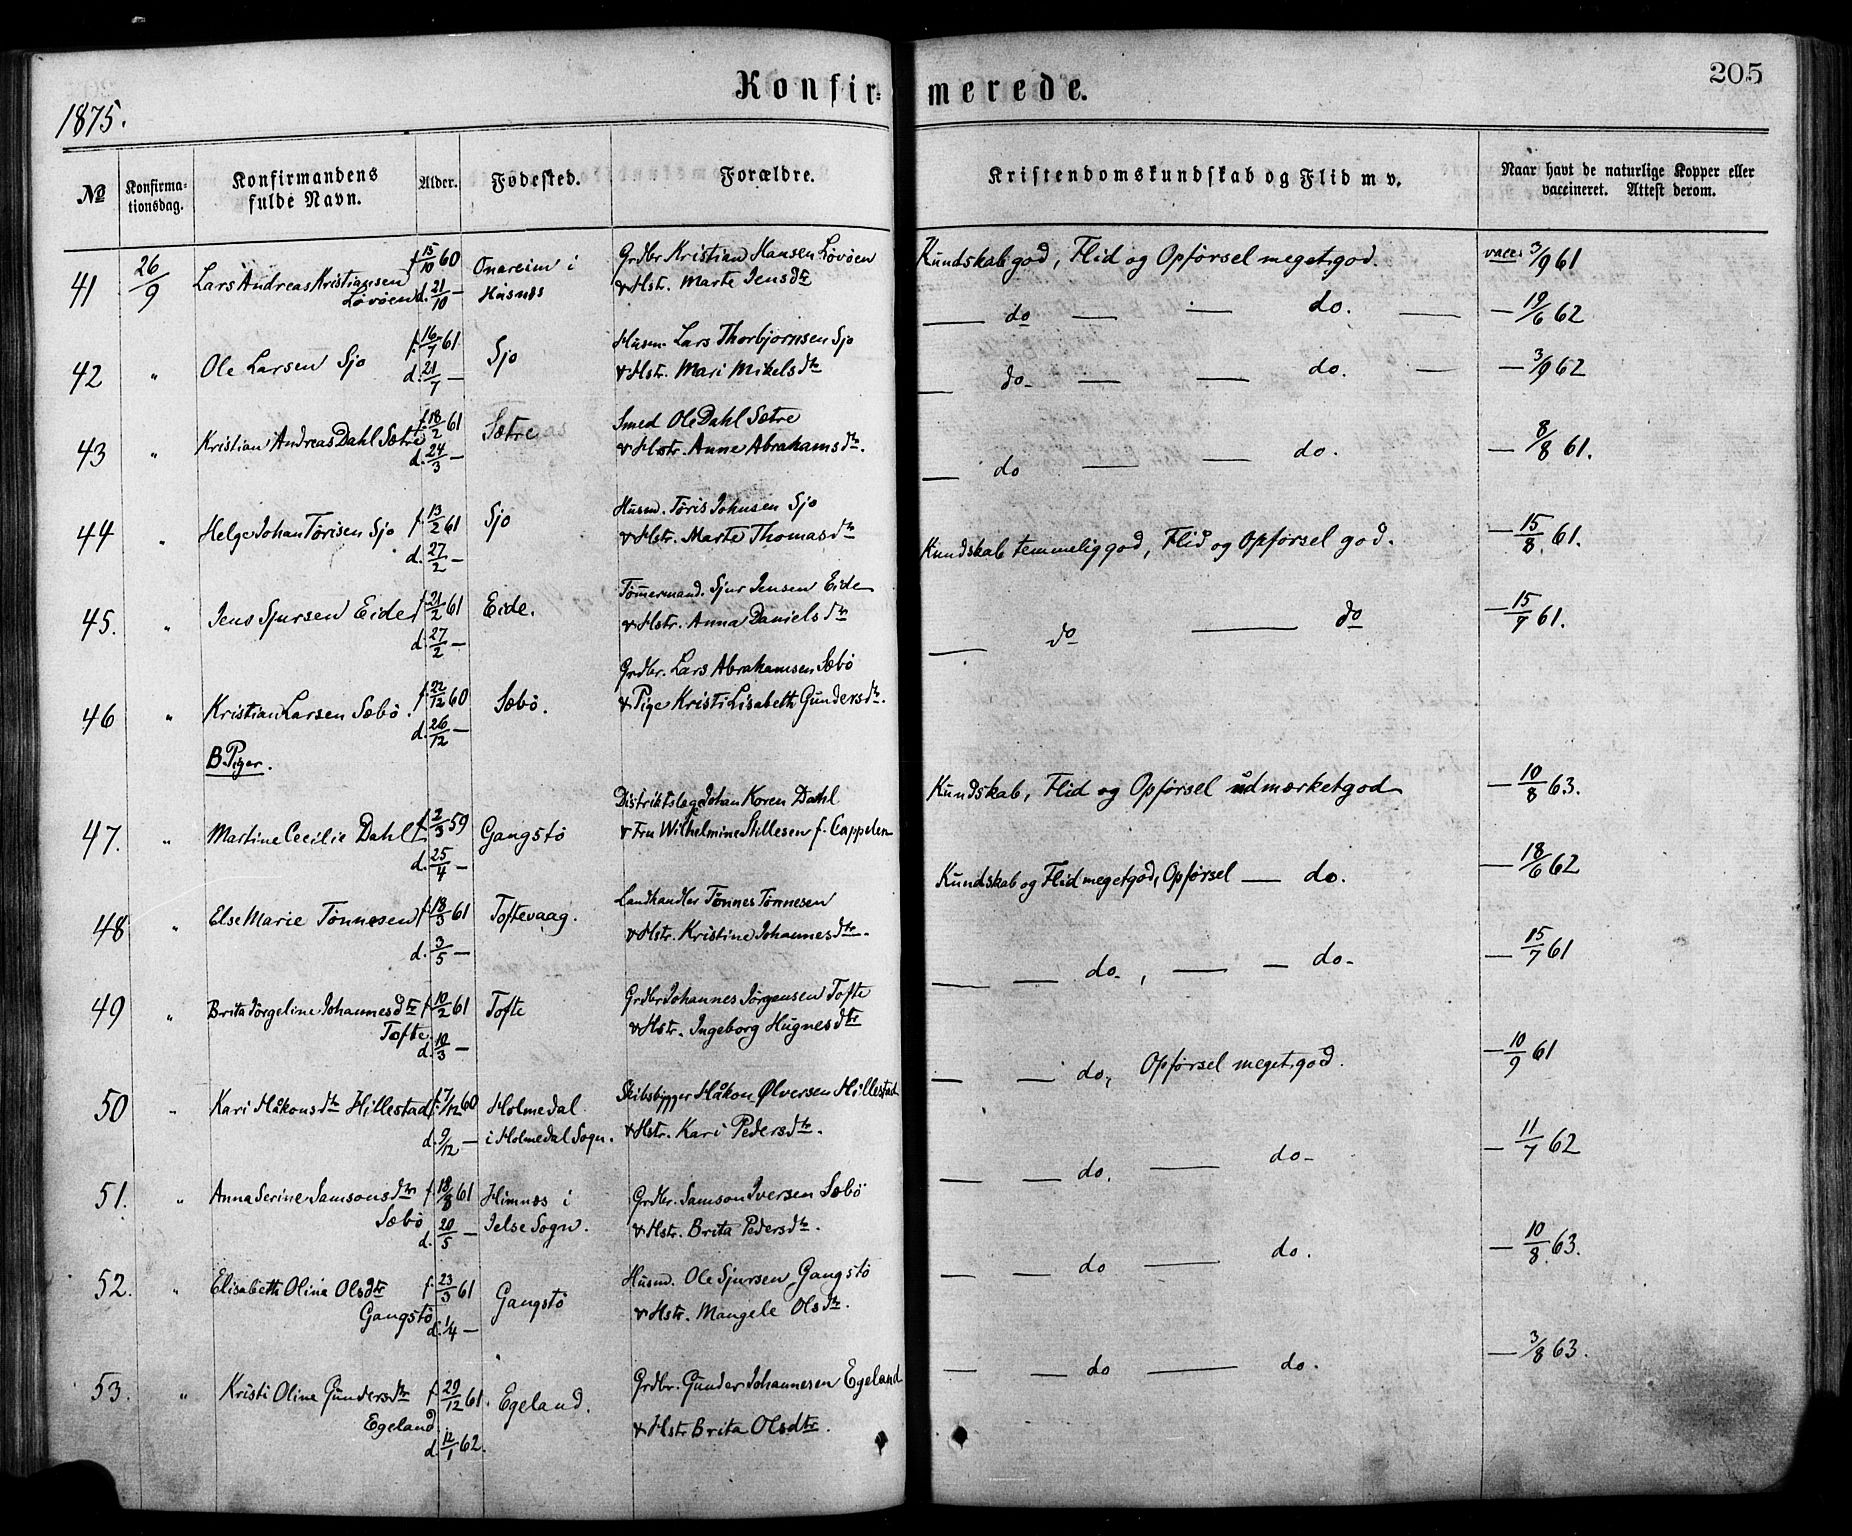 Konfir- merede.
205
1875.
№ Konfirma-tionsdag. Konfirmandens fulde Navn. Alder. Fødested. Forældre. Kristendomskundskab og Flid m v. Naar havt de naturlige Kopper eller vaccineret. Attest derom.
41 26/9 Lars Andreas Kristiansen f. 15/10 60 Onareim i Grdbr Kristian Hansen Løvøen Kundskab god, Flid og Opførsel meget god. vacc. 3/9 61
Løvøen d. 21/10 — Husnæs & Hstr. Marte Jensdtr
— do — — do. — — 19/6 62
42 " Ole Larsen Sjo f. 16/7 61 Sjo Husm. Lars Thorbjørnsen Sjo
d. 21/7 — & Hstr. Mari Mikelsdtr
— do — — do. — — 3/9 62
43 " Kristian Andreas Dahl Sætre f. 18/2 61 Sætre Smed Ole Dahl Sætre
d. 24/3 — & Hstr. Anne Abrahamsdtr.
— do — — do. — 8/8 61.
44 " Helge Johan Tørisen Sjo f. 13/2 61 Sjo Husmd. Tøris Johnsen Sjo
d. 27/2 — & Hstr. Marte Thomasdtr
Kundskab temmelig god, Flid og Opførsel god. — 15/8 61.
45. " Jens Sjursen Eide f. 21/2 61 Eide. Tømmermand. Sjur Jensen Eide
d. 27/2 — & Hstr. Anna Danielsdtr
— do — do — 15/7 61.
46 " Kristian Larsen Sæbö. f. 22/12 60 Sæbö. Grdbr. Lars Abrahamsen Sæbö
d. 26/12 — & Pige Kristi Lisabeth Gundersdtr.
B. Piger.
47. " Martine Cecilie Dahl f. 2/3 59 Gangstö Distriktslæge Johan Koren Dahl Kundskab, Flid og Opførsel udmærket god — 10/8 63.
d. 25/4 — & Fru Wilhelmine Stillesen f. Cappelen
48 " Else Marie Tönnesen f. 18/3 61 Toftevaag. Landhandler Tönnes Tönnesen Kundskab og Flid meget god, Opførsel — do. — 18/6 62
d. 3/5 — & Hstr. Kristine Johannesdtr.
— — do., — — do — 15/7 61
49 " Brita Jörgeline Johannesdtr f. 10/2 61 Tofte Grdbr Johannes Jörgensen Tofte
Tofte. d. 10/3 — & Hstr. Ingeborg Hugnesdtr
— — do, Opførsel meget god. — 10/9 61
50 " Kari Håkonsdtr Hillestad f. 7/12 60 Holmedal Skibsbygger Håkon Ølversen Hillestad
d. 9/12 — i Holmedal Sogn. & Hstr. Kari Pedersdtr.
— — do. — do — 11/7 62
51. " Anna Serine Samsonsdtr f. 18/8 61 Himnæs i Grdbr. Samson Iversen Sæbö
Sæbö d. 20/5 — Jelse Sogn. & Hstr. Brita Pedersdtr.
— — do — do. — 10/8 63.
52. " Elisabeth Olina Olsdtr f. 23/3 61 Gangstö Husmd. Ole Sjursen Gangstö
Gangstö d. 1/4 — & Hstr. Mangele Olsdtr.
— — do — do. — 3/8 63.
53. " Kristi Oline Gundersdtr f. 29/12 61. Egeland. Grdbr. Gunder Johannesen Egeland
Egeland d. 12/1 62. & Hstr Brita Olsdtr.